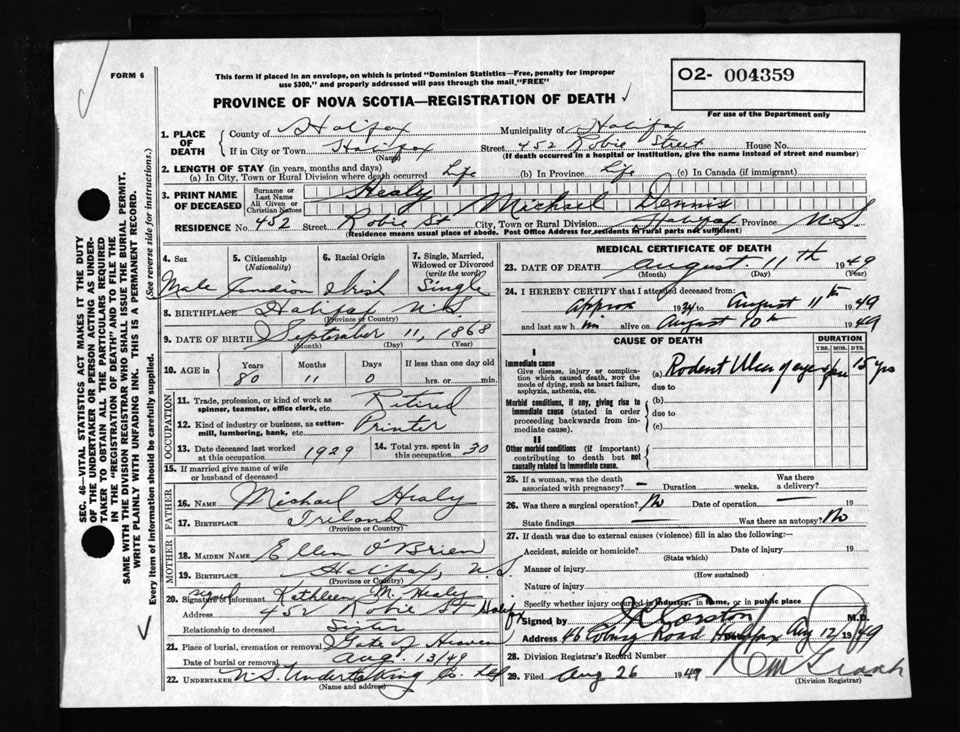 FORM 6
This form if placed in an envelope, on which is printed "Dominion Statistics—Free, penalty for improper
use $300," and properly addressed will pass through the mail "FREE"
PROVINCE OF NOVA SCOTIA—REGISTRATION OF DEATH
O2- 004359
For use of the Department only
SEC. 46—VITAL STATISTICS ACT MAKES IT THE DUTY
OF THE UNDERTAKER OR PERSON ACTING AS UNDER-
TAKER TO OBTAIN ALL THE PARTICULARS REQUIRED
IN THE "REGISTRATION OF DEATH" AND TO FILE THE
SAME WITH THE DIVISION REGISTRAR WHO SHALL ISSUE THE BURIAL PERMIT.
WRITE PLAINLY WITH UNFADING INK. THIS IS A PERMANENT RECORD.
Every item of information should be carefully supplied. (See reverse side for instructions.)
1. PLACE OF DEATH County of Halifax Municipality of Halifax
If in City or Town Halifax Street 452 Robie Street House No.
(Name) (If death occurred in a hospital or institution, give the name instead of street and number)
2. LENGTH OF STAY (in years, months and days)
(a) In City, Town or Rural Division where death occurred Life (b) In Province Life (c) In Canada (if immigrant)
3. PRINT NAME OF DECEASED Surname or Last Name Healy
All Given or Christian Names Michael Dennis
RESIDENCE No. 452 Street Robie St City, Town or Rural Division Halifax Province N.S
(Residence means usual place of abode. Post Office Address for residents in rural parts not sufficient)
4. Sex 5. Citizenship (Nationality) 6. Racial Origin 7. Single, Married, Widowed or Divorced (write the word)
Male Canadian Irish Single
8. BIRTHPLACE Halifax N.S.
(Province or Country)
9. DATE OF BIRTH September 11, 1868
(Month) (Day) (Year)
10. AGE in Years Months Days If less than one day old
80 11 0 hrs. or min.
OCCUPATION
11. Trade, profession, or kind of work as spinner, teamster, office clerk, etc. Retired
12. Kind of industry or business, as cotton-mill, lumbering, bank, etc. Printer
13. Date deceased last worked at this occupation 1929 14. Total yrs. spent in this occupation 30
15. If married give name of wife or husband of deceased
FATHER
16. NAME Michael Healy
17. BIRTHPLACE Ireland
(Province or Country)
MOTHER
18. MAIDEN NAME Ellen O'Brien
19. BIRTHPLACE Halifax, N.S
(Province or Country)
20. Signature of Informant signed Kathleen M. Healy
Address 452 Robie St Halifax
Relationship to deceased Sister
21. Place of burial, cremation or removal Gate of Heaven
Date of burial or removal Aug. 13/49
22. UNDERTAKER N.S. Undertaking Co. Ltd
(Name and address)
MEDICAL CERTIFICATE OF DEATH
23. DATE OF DEATH August 11th 1949
(Month) (Day) (Year)
24. I HEREBY CERTIFY that I attended deceased from:
approx 1934 to August 11th 1949
and last saw him alive on August 10th 1949
CAUSE OF DEATH DURATION
YRS. MOS. DYS.
I
Immediate cause
Give disease, injury or complication which caused death, NOT the mode of dying, such as heart failure, asphyxia, asthenia, etc.
(a) Rodent Ulcer of eye 15 yrs
due to
Morbid conditions, if any, giving rise to immediate cause (stated in order proceeding backwards from immediate cause).
(b)
due to
(c)
II
Other morbid conditions (if important) contributing to death but not causally related to immediate cause.
25. If a woman, was the death associated with pregnancy? – Duration weeks. Was there a delivery? –
26. Was there a surgical operation? No Date of operation 19
State findings Was there an autopsy? No
27. If death was due to external causes (violence) fill in also the following:—
Accident, suicide or homicide? Date of injury 19
(State which)
Manner of injury
(How sustained)
Nature of injury
Specify whether injury occurred in industry, in home, or in public place
Signed by M.D.
Address 46 Road Halifax Aug 12/1949
28. Division Registrar's Record Number
29. Filed Aug 26 1949
(Division Registrar)